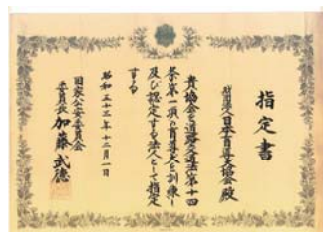 指定書
財団法人日本盲導犬協会 殿
貴協会を道路交通法第十四
条第一項の盲導犬を訓練し
及び認定する法人として指定
する
昭和五十三年十二月一日
国家公安委員会
委員長 加藤武徳